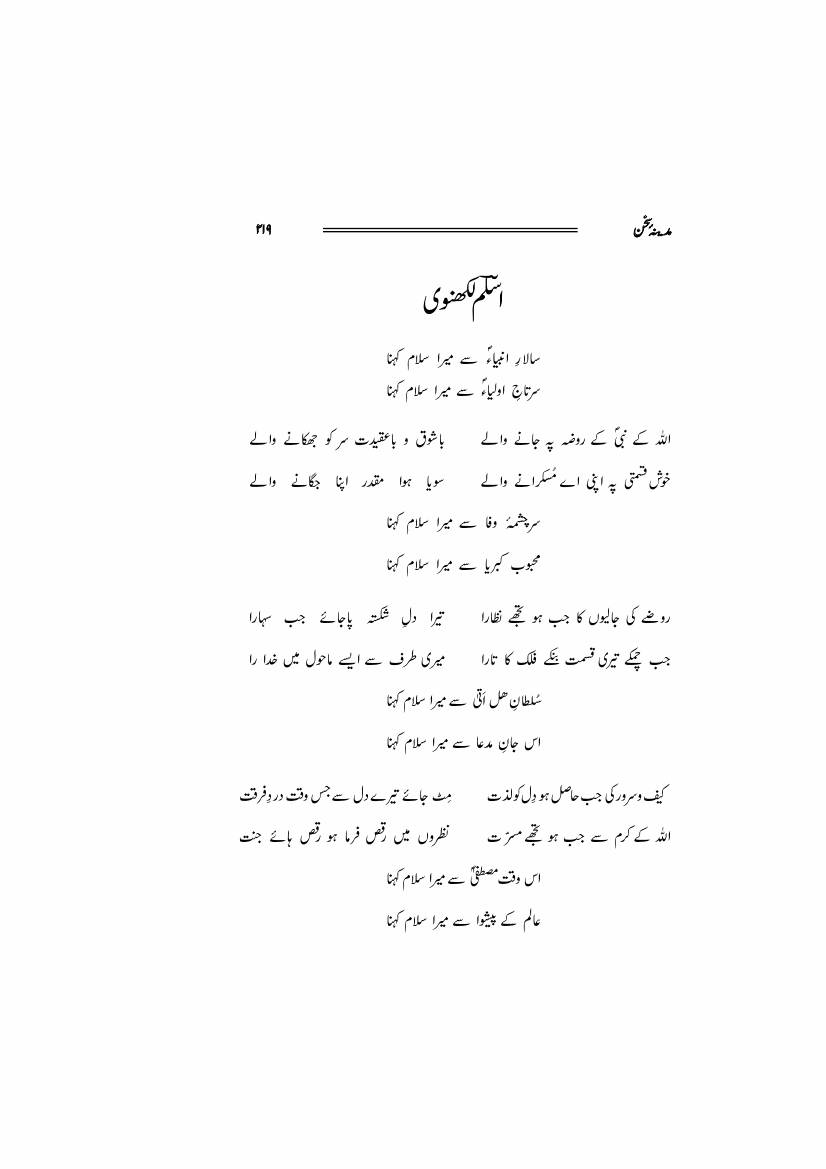 مدینۂ سخن ۲۱۹
اسلم لکھنوی
سالارِ انبیاءؐ سے میرا سلام کہنا
سرتاجِ اولیاءؐ سے میرا سلام کہنا
اللہ کے نبیؐ کے روضہ پہ جانے والے باشوق و باعقیدت سر کو جھکانے والے
خوش قسمتی پہ اپنی اے مُسکرانے والے سویا ہوا مقدر اپنا جگانے والے
سرچشمۂ وفا سے میرا سلام کہنا
محبوب کبریا سے میرا سلام کہنا
روضے کی جالیوں کا جب ہو تجھے نظارا تیرا دلِ شکستہ پاجائے جب سہارا
جب چمکے تیری قسمت بَنکے فلک کا تارا میری طرف سے ایسے ماحول میں خدا را
سُلطانِ ھل اَتیٰ سے میرا سلام کہنا
اس جانِ مدعا سے میرا سلام کہنا
کیف وسرور کی جب حاصل ہو دِل کو لذت مِٹ جائے تیرے دل سے جس وقت دردِ فرقت
اللہ کے کرم سے جب ہو تجھے مسرّت نظروں میں رقص فرما ہو رقص ہائے جنت
اس وقت مصطفیٰؐ سے میرا سلام کہنا
عالم کے پیشوا سے میرا سلام کہنا